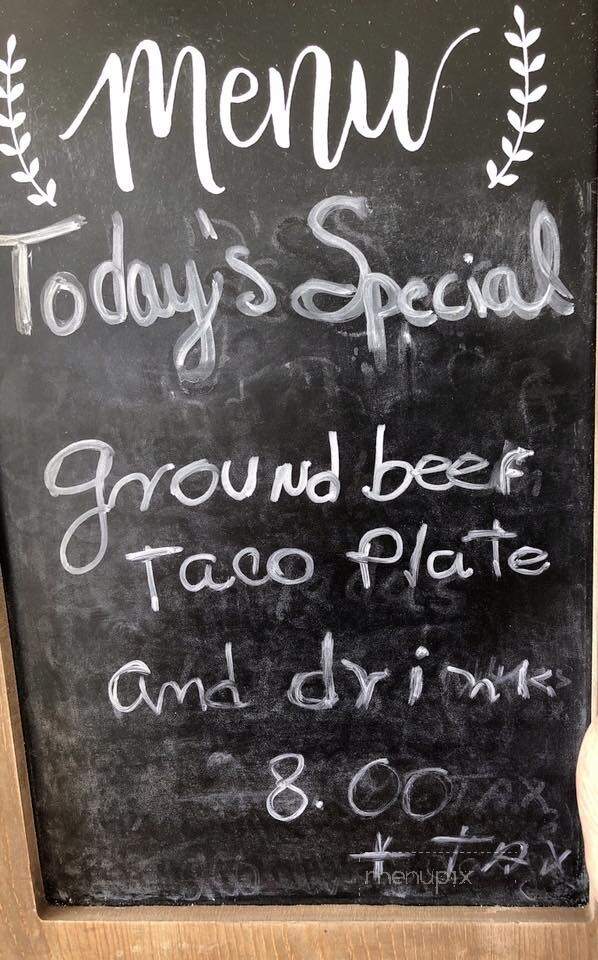 Menu
Today's Special
ground beef
Taco Plate
and drink
8.00
+ TAX
menupix